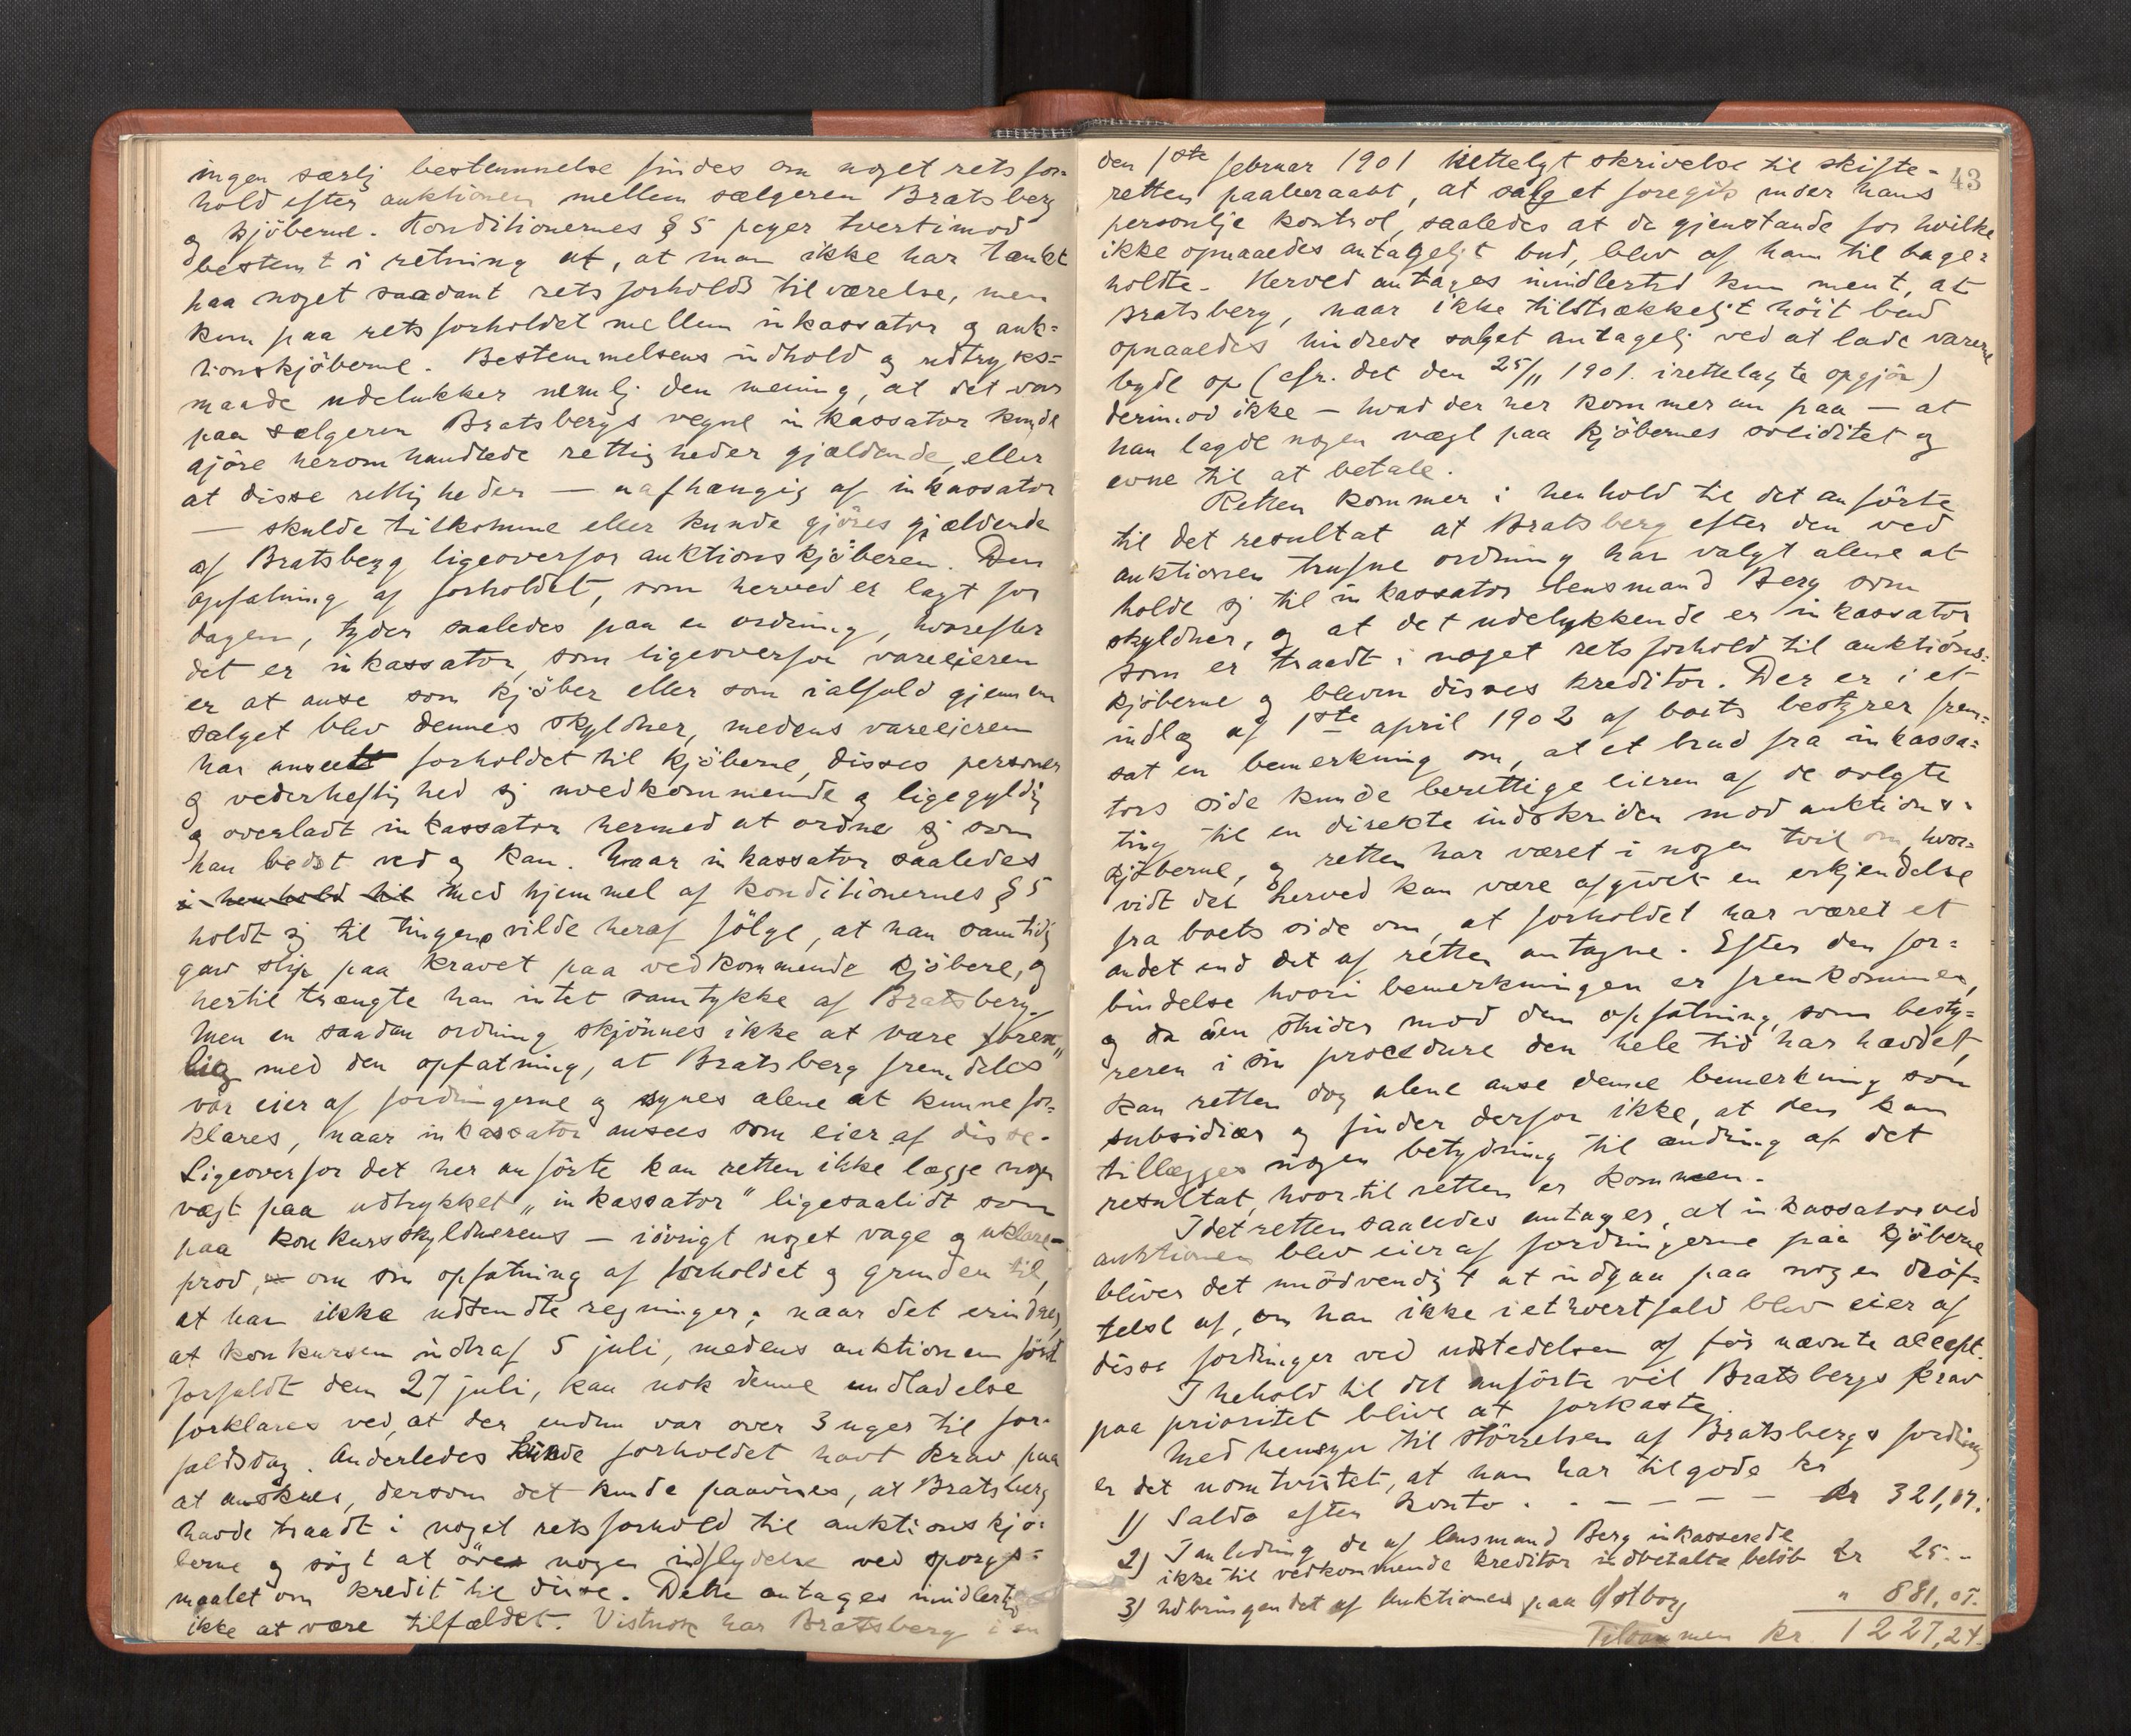 ingen særlig bestemmelse findes om noget retsfor-
hold efter auktionen mellem sælgeren Bratsberg
og kjöberne. Konditionernes § 5 peger tvertimod
bestemt i retning af, at man ikke har tænkt
paa noget saadant retsforholds tilværelse, men
kun paa retsforholdet mellem inkassator og auk-
tionskjöberne. Bestemmelsens indhold og udtryks-
maade udelukker nemlig den mening, at det var
paa sælgeren Bratsbergs vegne inkassator kunde
gjöre heromhandlede rettigheder gjældende, eller
at disse rettigheder — uafhængig af inkassator
— skulde tilkomme eller kunde gjöres gjældende
af Bratsberg ligeoverfor auktionskjöberen. Den
opfatning af forholdet, som herved er lagt for
dagen, tyder saaledes paa en ordning, hvorefter
det er inkassator, som ligeoverfor vareeieren
er at anse som kjöber eller som ialfald gjennem
salget blev dennes skyldner, medens vareeieren
har anseet forholdet til kjöberne, disses personer
og vederheftighed sig uvedkommende og ligegyldig
og overladt inkassator hermed at ordne sig som
han bedst ved og kan. Naar inkassator saaledes
i henhold til med hjemmel af konditionernes § 5
holdt sig til tingene vilde heraf fölge, at han samtidig
gav slip paa kravet paa vedkommende kjöbere, og
hertil trængte han intet samtykke af Bratsberg.
Men en saadan ordning skjönnes ikke at være foren-
lig med den opfatning, at Bratsberg fremdeles
var eier af fordringerne og synes alene at kunne for-
klares, naar inkassator ansees som eier af disse.
Ligeoverfor det her anförte kan retten ikke lægge nogen
vægt paa udtrykket „inkassator" ligesaalidt som
paa konkursskyldnerens — iövrigt noget vage og uklare —
prov, om sin opfatning af forholdet og grunden til,
at han ikke udsendte regninger; naar det erindres,
at konkursen indtraf 5 juli, medens auktionen först
forfaldt den 27 juli, kan nok denne undladelse
forklares ved, at der endnu var over 3 uger til for-
faldsdag. Anderledes kunde forholdet havt krav paa
at ansees, dersom det kunde paavises, at Bratsberg
havde traadt i noget retsforhold til auktionskjö-
berne og sögt at öve nogen indflydelse ved sporgs-
maalet om kredit til disse. Dette antages imidlertid
ikke at være tilfældet. Vistnok har Bratsberg i en
43
den 1ste februar 1901 irettelagt skrivelse til skifte-
retten paaberaabt, at salget foregik under hans
personlige kontrol, saaledes at de gjenstande for hvilke
ikke opnaaedes antageligt bud, blev af ham tilbage-
holdte. Herved antages imidlertid kun ment, at
Bratsberg, naar ikke tilstrækkeligt höit bud
opnaaedes hindrede salget antagelig ved at lade varerne
byde op (cfr. det den 25/11 1901. irettelagte opgjör)
derimod ikke — hvad der her kommer an paa — at
han lagde nogen vægt paa kjöbernes soliditet og
evne til at betale.
Retten kommer i henhold til det anförte
til det resultat at Bratsberg efter den ved
auktionen trufne ordning har valgt alene at
holde sig til inkassator lensmand Berg som
skyldner, og at det udelukkende er inkassator,
som er traadt i noget retsforhold til auktions-
kjöberne og bleven disses kreditor. Der er i et
indlæg af 1ste april 1902 af boets bestyrer frem-
sat en bemerkning om, at et brud fra inkassa-
tors side kunde berettige eieren af de solgte
ting til en direkte indskriden mod auktions-
kjöberne, og retten har været i nogen tvil om, hvor-
vidt det herved kan være afgivet en erkjendelse
fra boets side om, at forholdet har været et
andet end det af retten antagne. Efter den for-
bindelse hvori bemerkningen er fremkommen,
og da den strider mod den opfatning, som besty-
reren i sin procedure den hele tid har hævdet,
kan retten dog alene anse denne bemerkning som
subsidiær og finder derfor ikke, at den kan
tillægges nogen betydning til ændring af det
resultat, hvortil retten er kommen.
Idet retten saaledes antager, at inkassator ved
auktionen blev eier af fordringerne paa kjöberne
bliver det unödvendigt at indgaa paa nogen dröf-
telse af, om han ikke i ethvert fald blev eier af
disse fordringer ved udstedelsen af för nævnte accept.
I hehold til det anförte vil Bratsbergs krav
paa prioritet blive at forkaste.
Med hensyn til störrelsen af Bratsbergs fordring
er det uomtvistet, at han har tilgode kr
1) Saldo efter konto . . — — — — — kr 321,17.
2) I anledning de af lensmand Berg inkasserede
ikke til vedkommende kreditor indbetalte belöb kr 25.-
3) Udbringendet af Auktionen paa Östborg " 881,07.
Tilsammen kr. 1227,24.